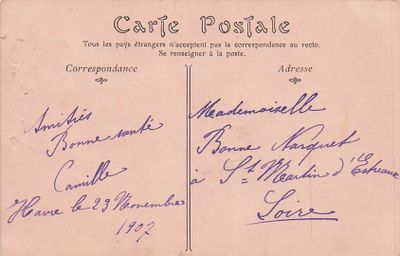 Carte Postale
Tous les pays étrangers n'acceptent pas la correspondance au recto.
Se renseigner à la poste.
Correspondance
Amitiés
Bonne santé
Camille
Havre le 23 Novembre
1907
Adresse
Mademoiselle
Bonne
à St Martin d'Estreaux
Loire